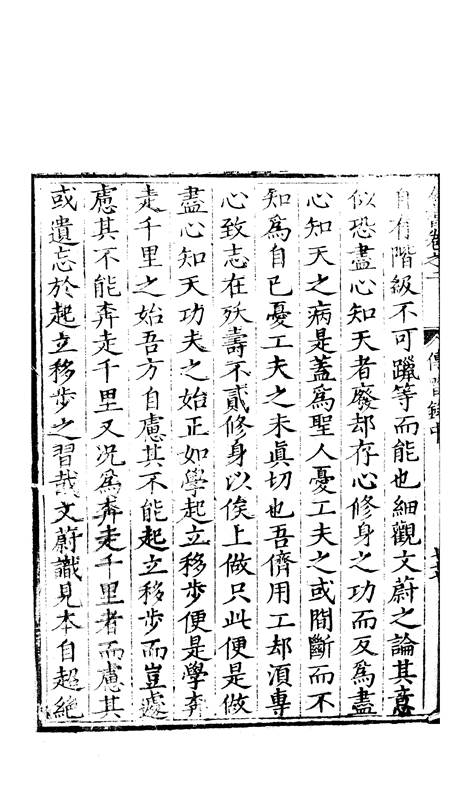 傳習錄中
自有階級不可躐等而能也細觀文蔚之論其意
似恐盡心知天者廢却存心修身之功而反爲盡
心知天之病是蓋爲聖人憂工夫之或間斷而不
知爲自己憂工夫之未眞切也吾儕用工却須專
心致志在殀壽不貳修身以俟上做只此便是做
盡心知天功夫之始正如學起立移步便是學奔
走千里之始吾方自慮其不能起立移步而豈遽
慮其不能奔走千里又况爲奔走千里者而慮其
或遺忘於起立移步之習哉文蔚識見本自超絶